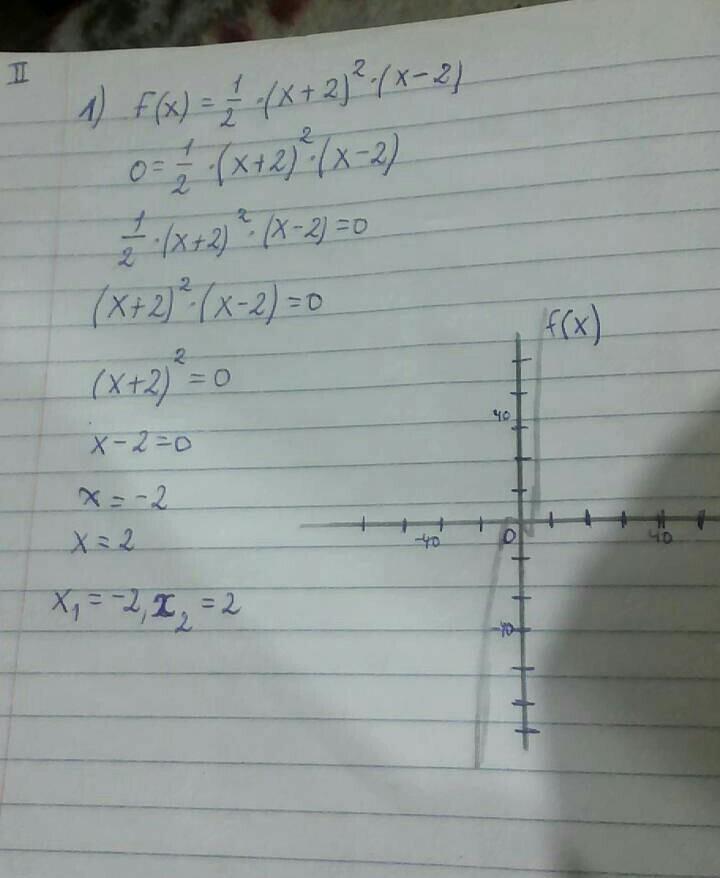 II
1) f(x) = 1/2 · (x+2)² · (x-2)
0 = 1/2 · (x+2)² · (x-2)
1/2 · (x+2)² · (x-2) = 0
(x+2)² · (x-2) = 0
(x+2)² = 0
x-2=0
x = -2
x = 2
x₁ = -2, x₂ = 2
f(x)
40
-40 0 40
-40